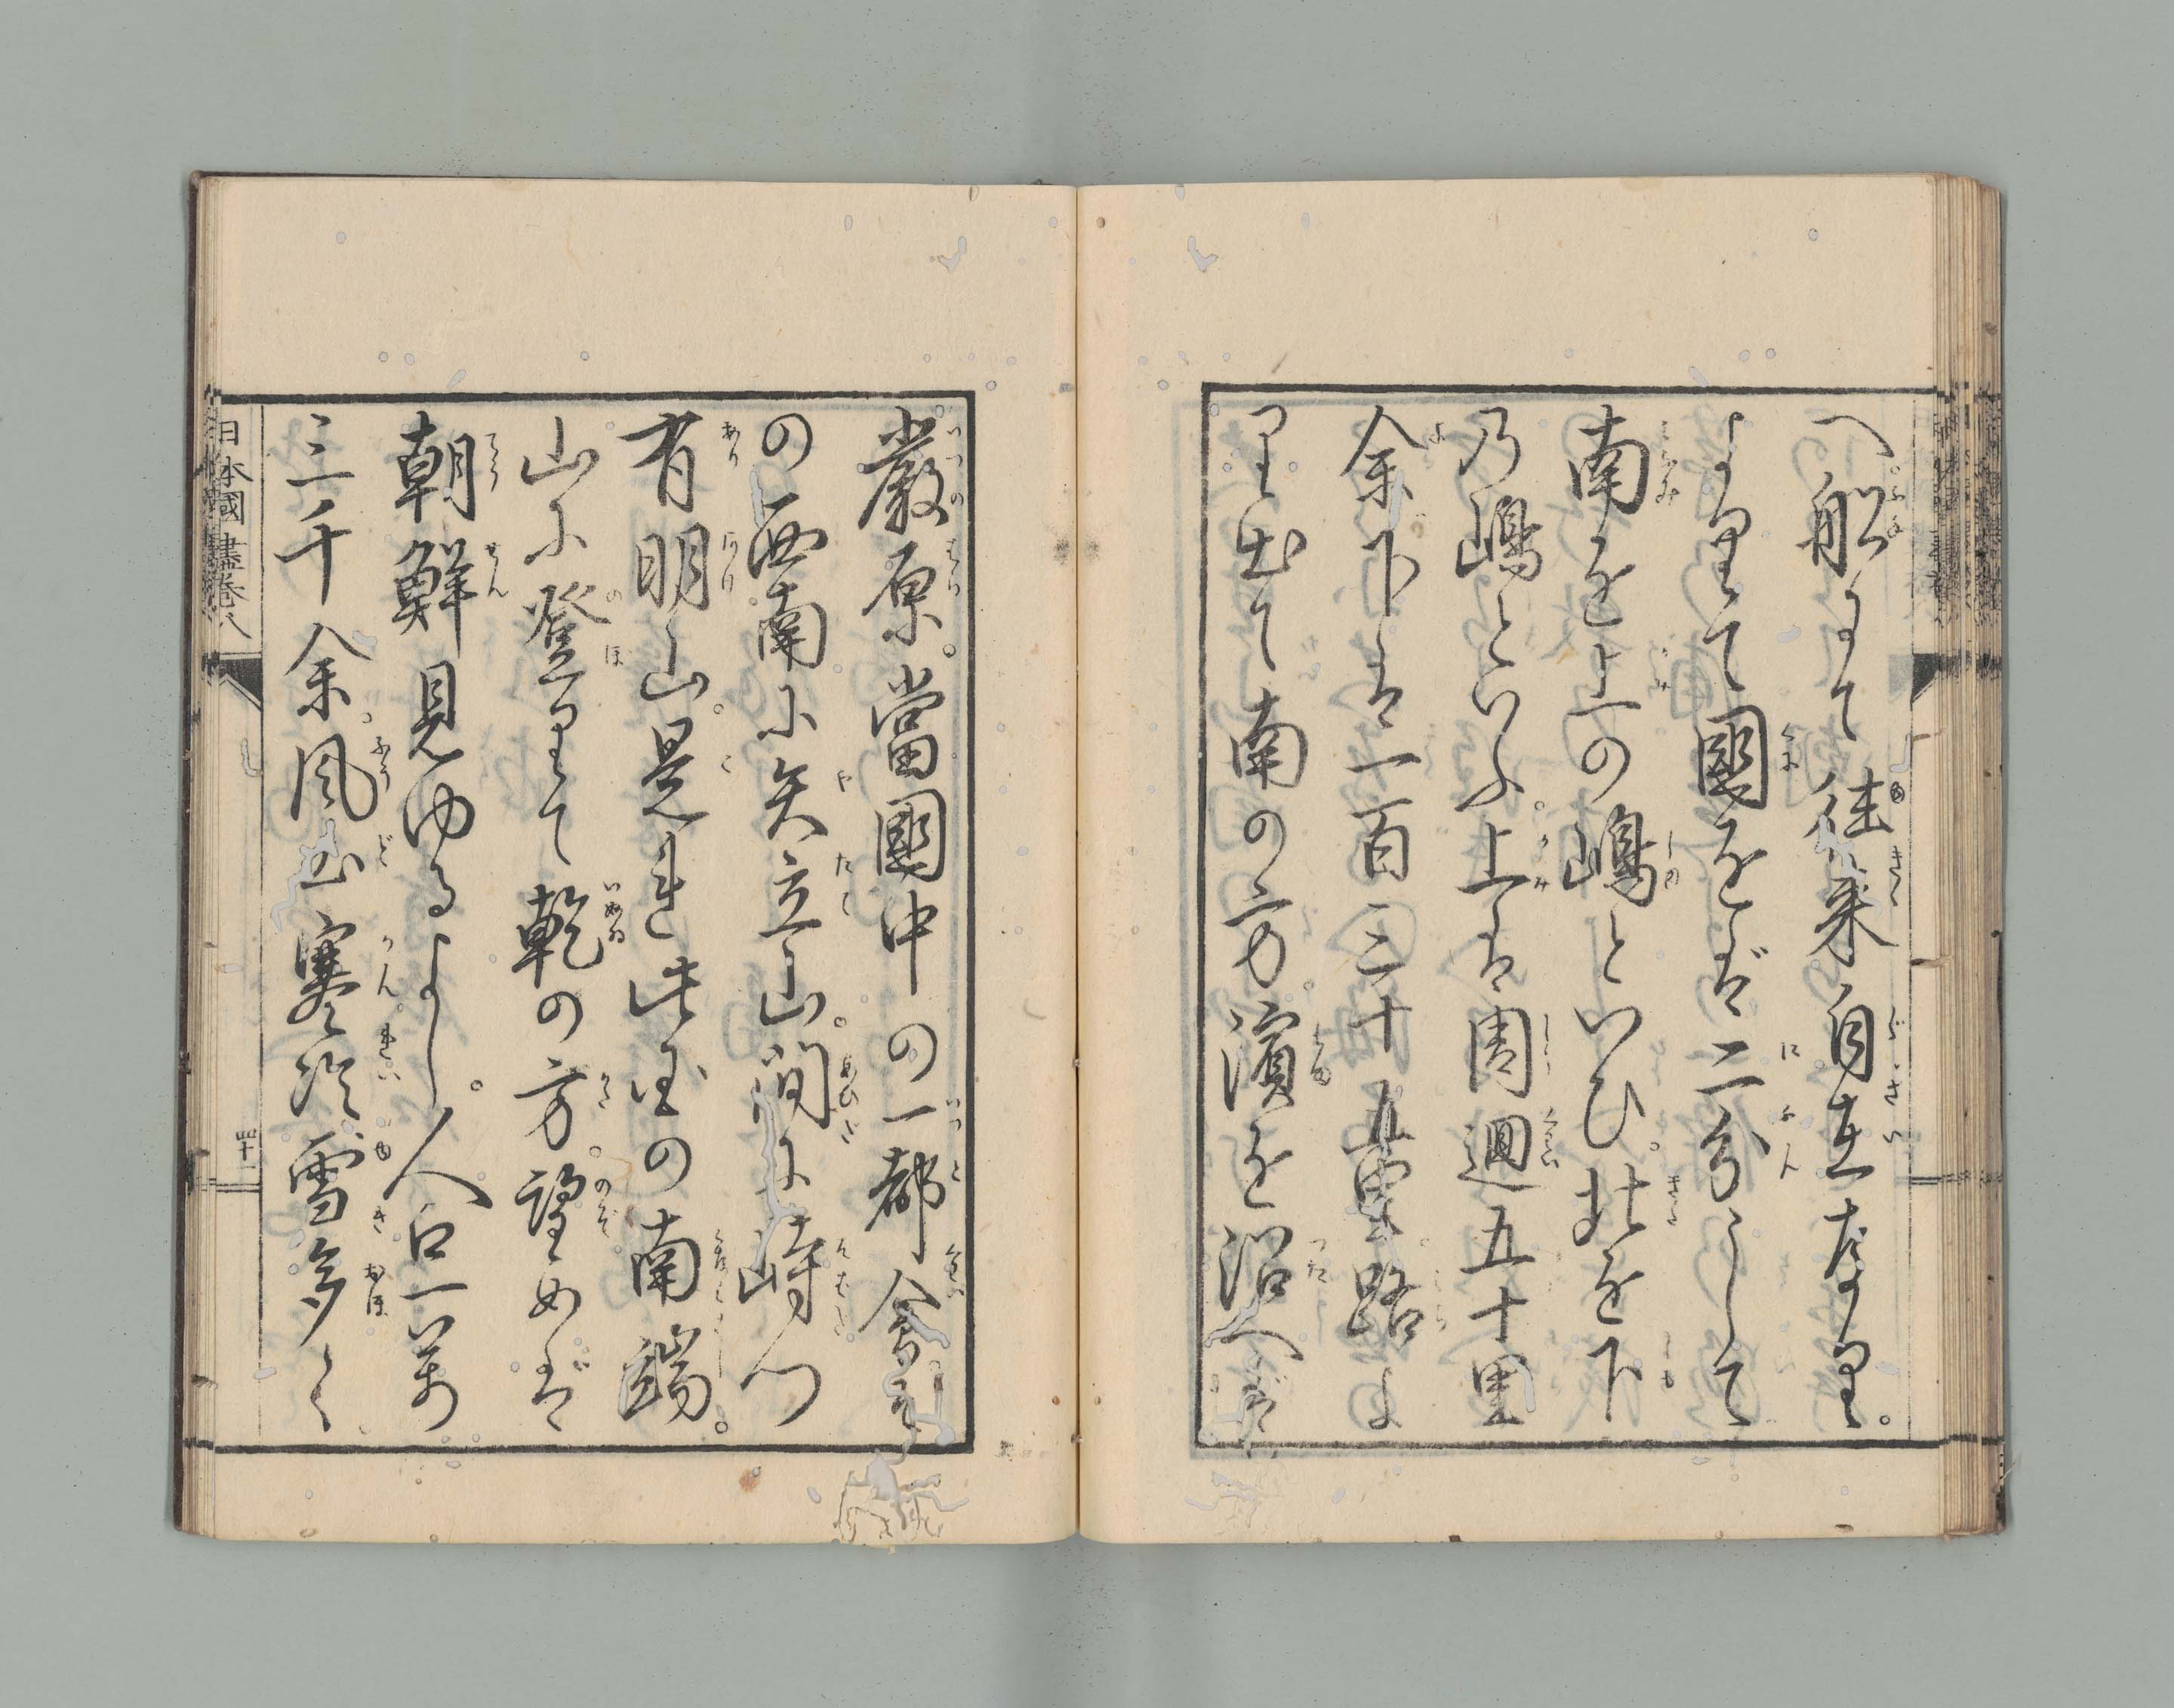 へ船にて往来自在なり。
よりて國をば二分にして
南を上の嶋といひ。北を下
の嶋といふ。上は周廻五十里
余下は一百三十五里。路よ
り出て南の方。濱を沿へば
嚴原。當國中の一都會に
の西南に矢立山。間に峙つ
有明山。是れ此国の南端。
山に登りて乾の方。望めば
朝鮮見ゆるよし。人口一万
三千余。風土寒冷雪多く
日本國盡卷八
四十一